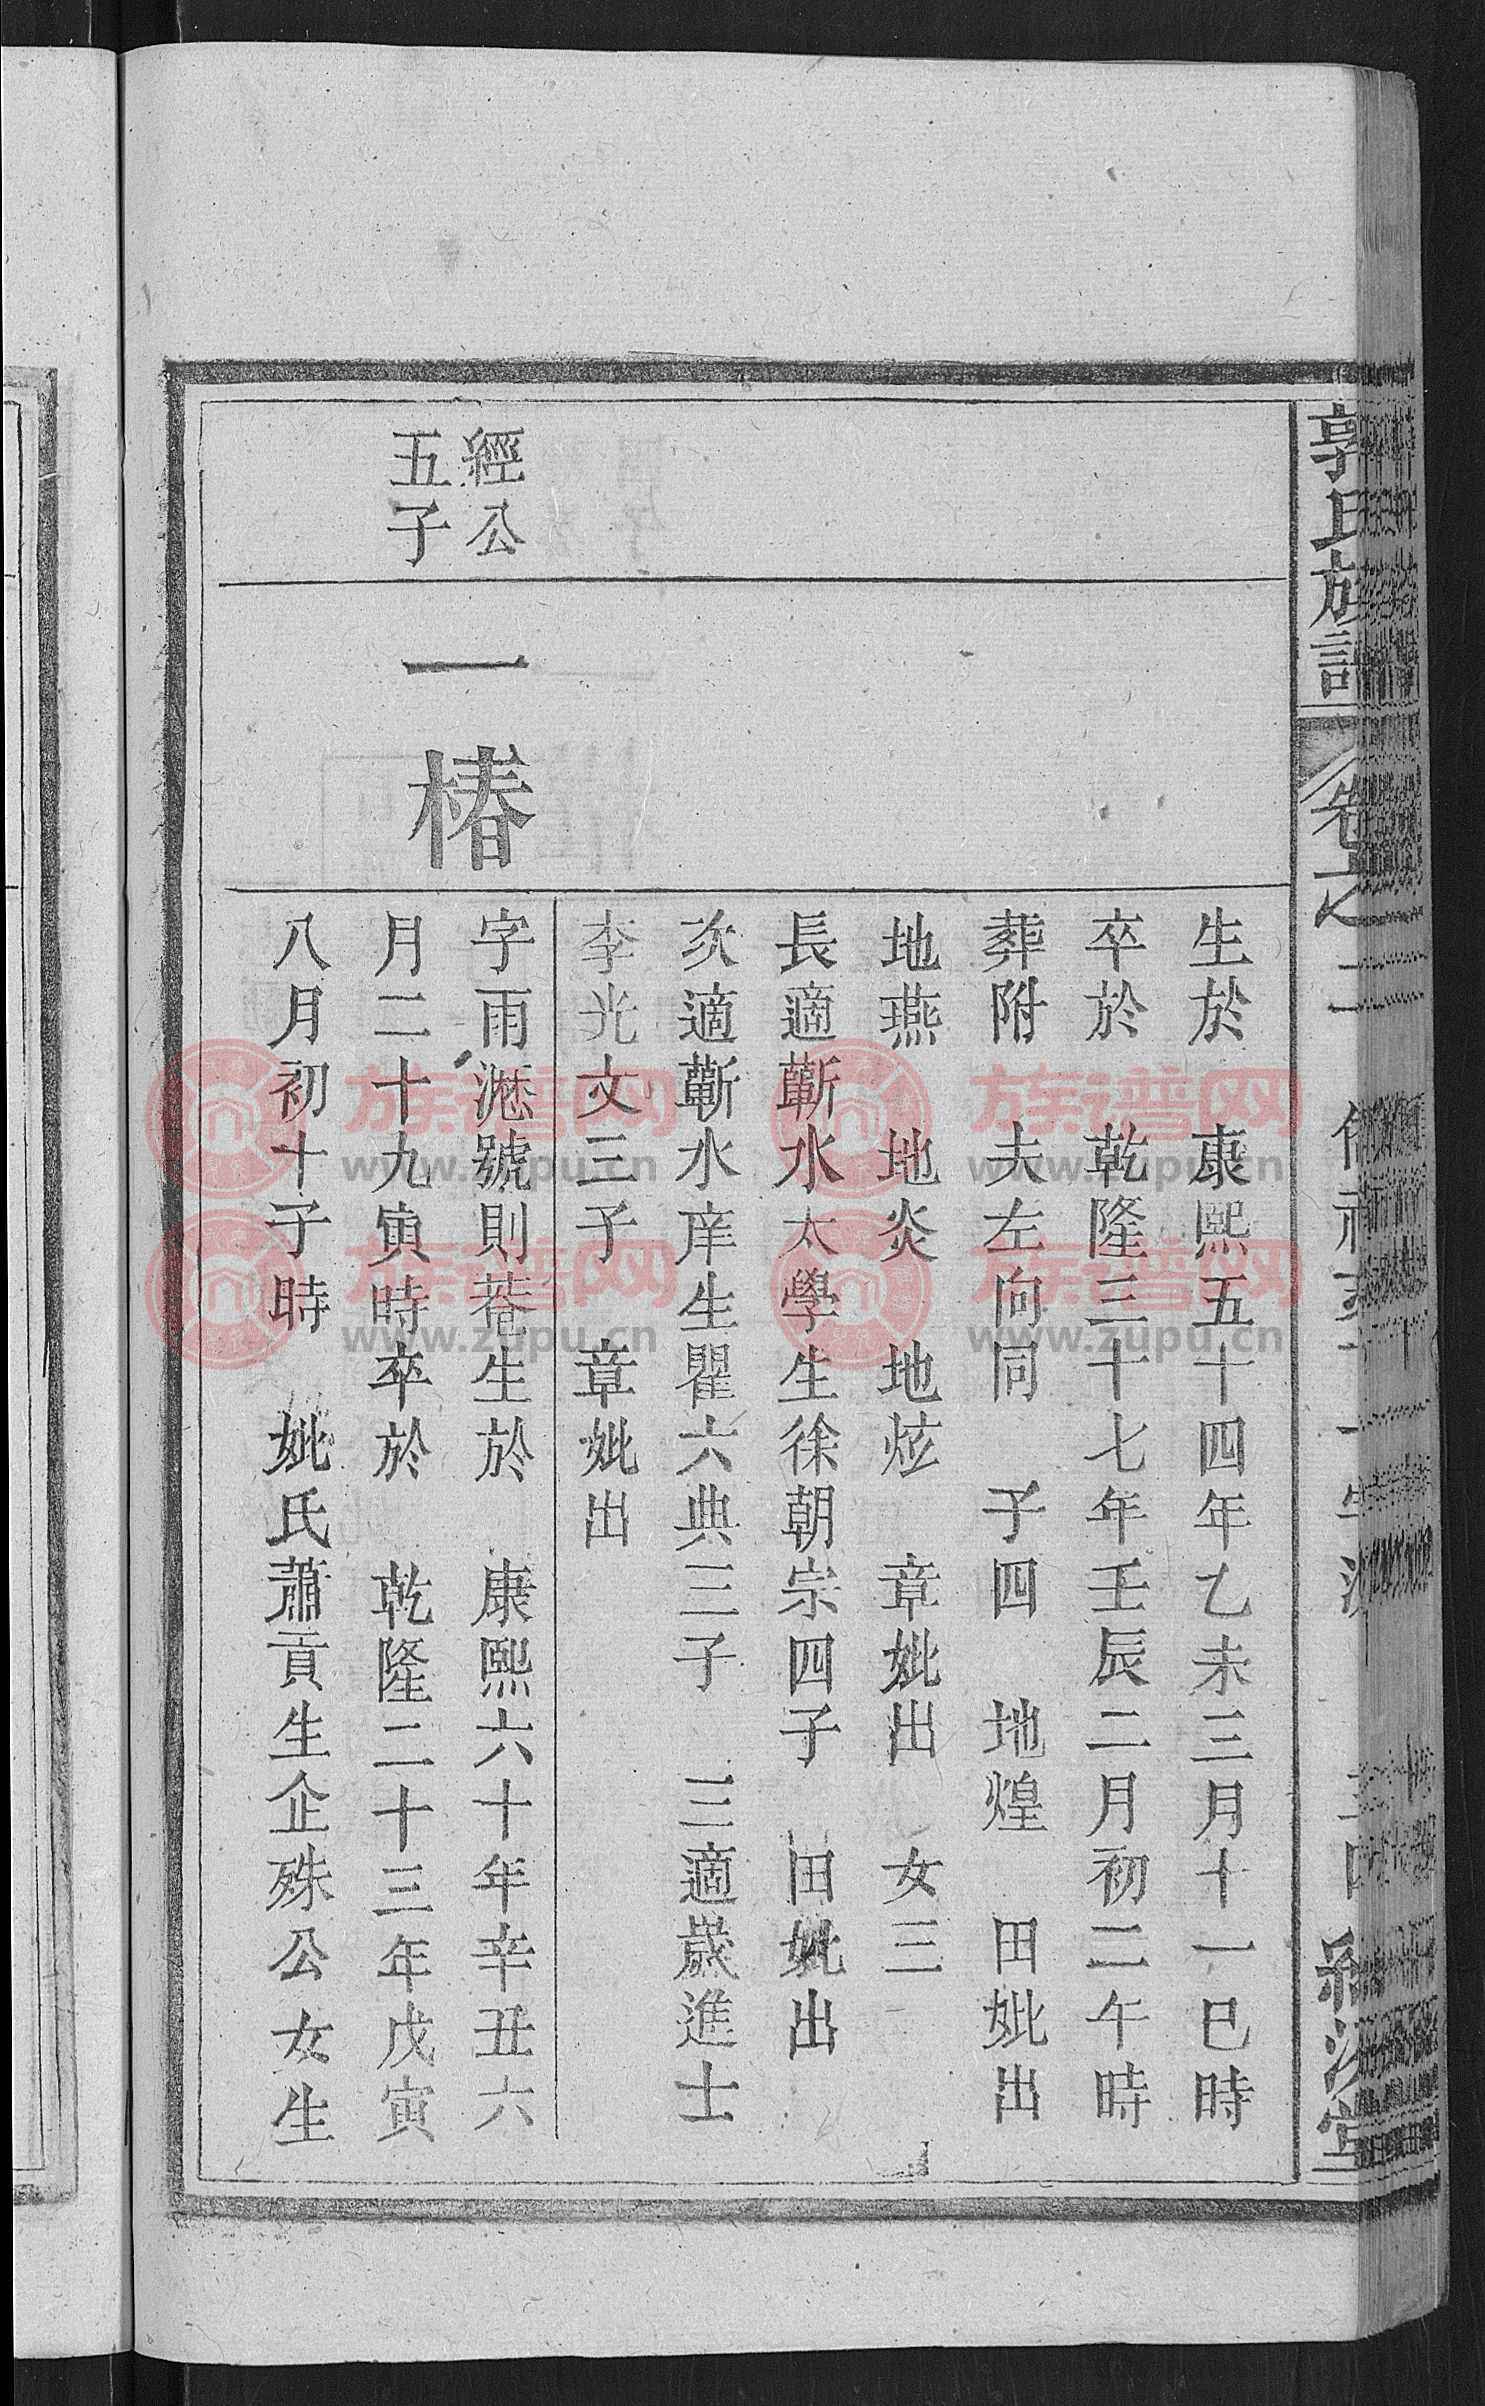 郭氏族譜
卷之二
生於 康熙五十四年乙未三月十一巳時
卒於 乾隆三十七年壬辰二月初二午時
葬附 夫左向同 子四 地煌 田妣出
地燕 地炎 地炫 章妣出 女三
長適蘄水太學生徐朝宗四子 田妣出
次適蘄水庠生瞿六典三子 三適歲進士
李光文三子 章妣出
經公
五子
一椿
字雨濨號則菴生於 康熙六十年辛丑六
月二十九寅時卒於 乾隆二十三年戊寅
八月初十子時 妣氏蕭貢生企殊公女生
族譜网
www.zupu.cn
族譜网
www.zupu.cn
族譜网
www.zupu.cn
族譜网
www.zupu.cn